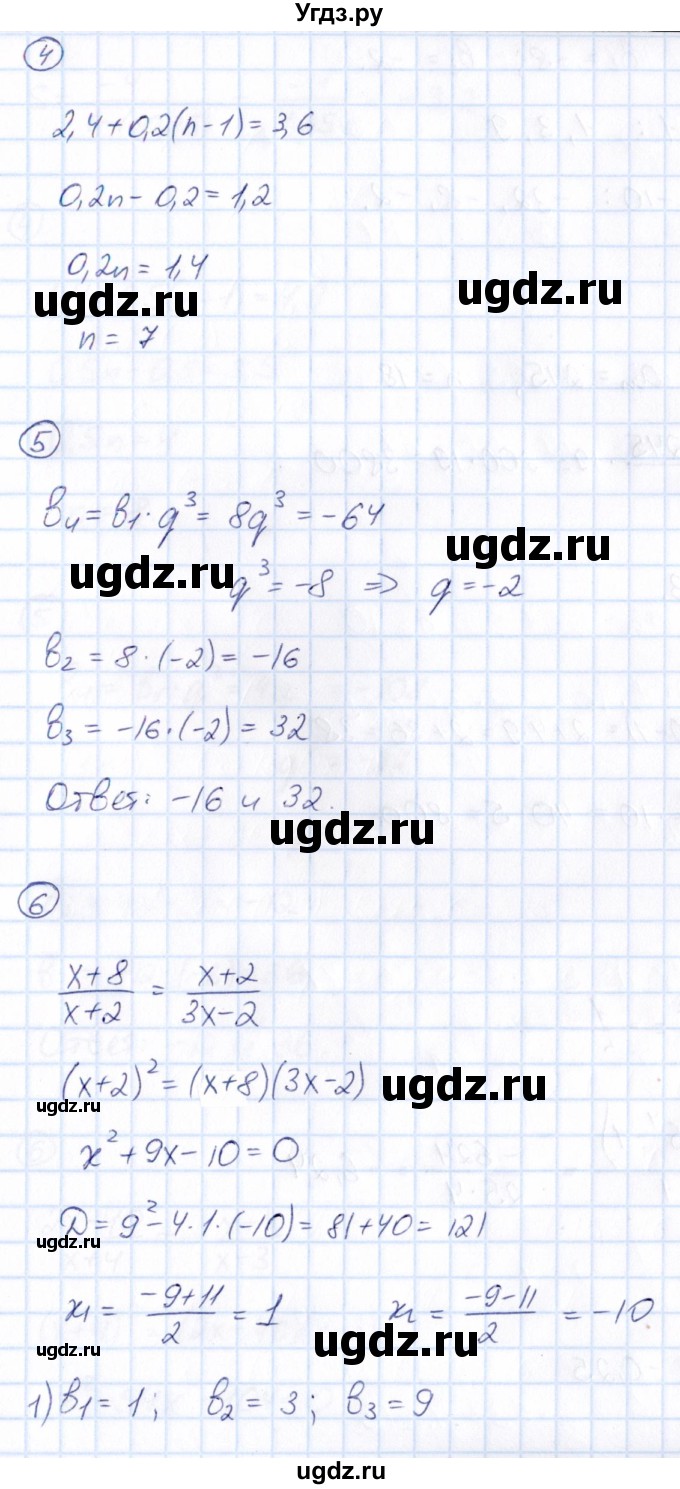 Угдз.ру
4
2,4+0,2(n-1)=3,6
0,2n-0,2=1,2
0,2n=1,4
ugdz.ru ugdz.ru
n= 7
5
b₄=b₁·q³= 8q³=-64
ugdz.ru
ugdz.ru q³=-8 ⇒ q=-2
b₂=8·(-2)=-16
b₃=-16·(-2)=32
Ответ: -16 и 32.
ugdz.ru
6
(x+8)/(x+2) = (x+2)/(3x-2)
(x+2)²=(x+8)(3x-2) ugdz.ru
ugdz.ru
x²+9x-10=0
D=9²-4·1·(-10)=81+40=121
ugdz.ru
x₁= (-9+11)/2 =1 x₂= (-9-11)/2 =-10
ugdz.ru ugdz.ru
1) b₁=1; b₂=3; b₃=9
ugdz.ru